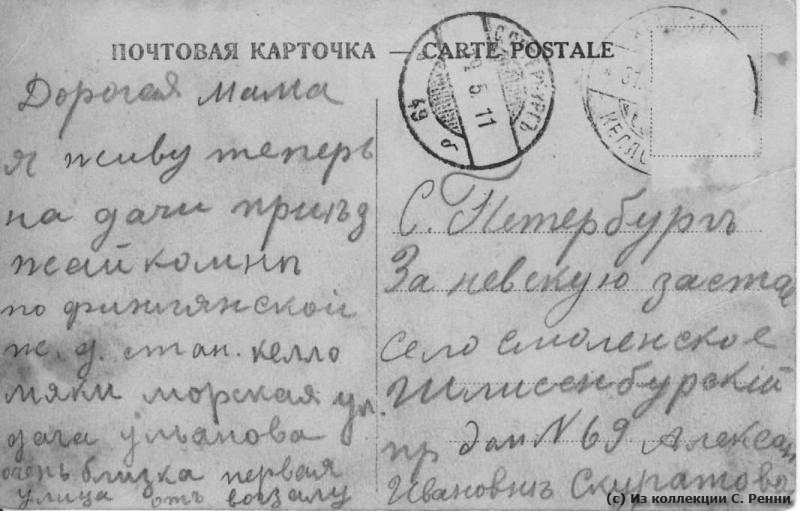 ПОЧТОВАЯ КАРТОЧКА — CARTE POSTALE
Дорогая мама
я живу теперь
на дачи приѣз
жай комнѣ
по финлянской
ж. д. стан. келло
мяки морская ул.
дача ульянова
очень близка первая
улица отъ вокзалу
С.ПЕТЕРБУРГЪ
5.11
49
31.
КЕЛЛО
С. Петербургъ
За невскую застав
село смоленское
Шлисенбурский
пр дом N 69 Алексан
Ивановнѣ Скуратова
(c) Из коллекции С. Ренни